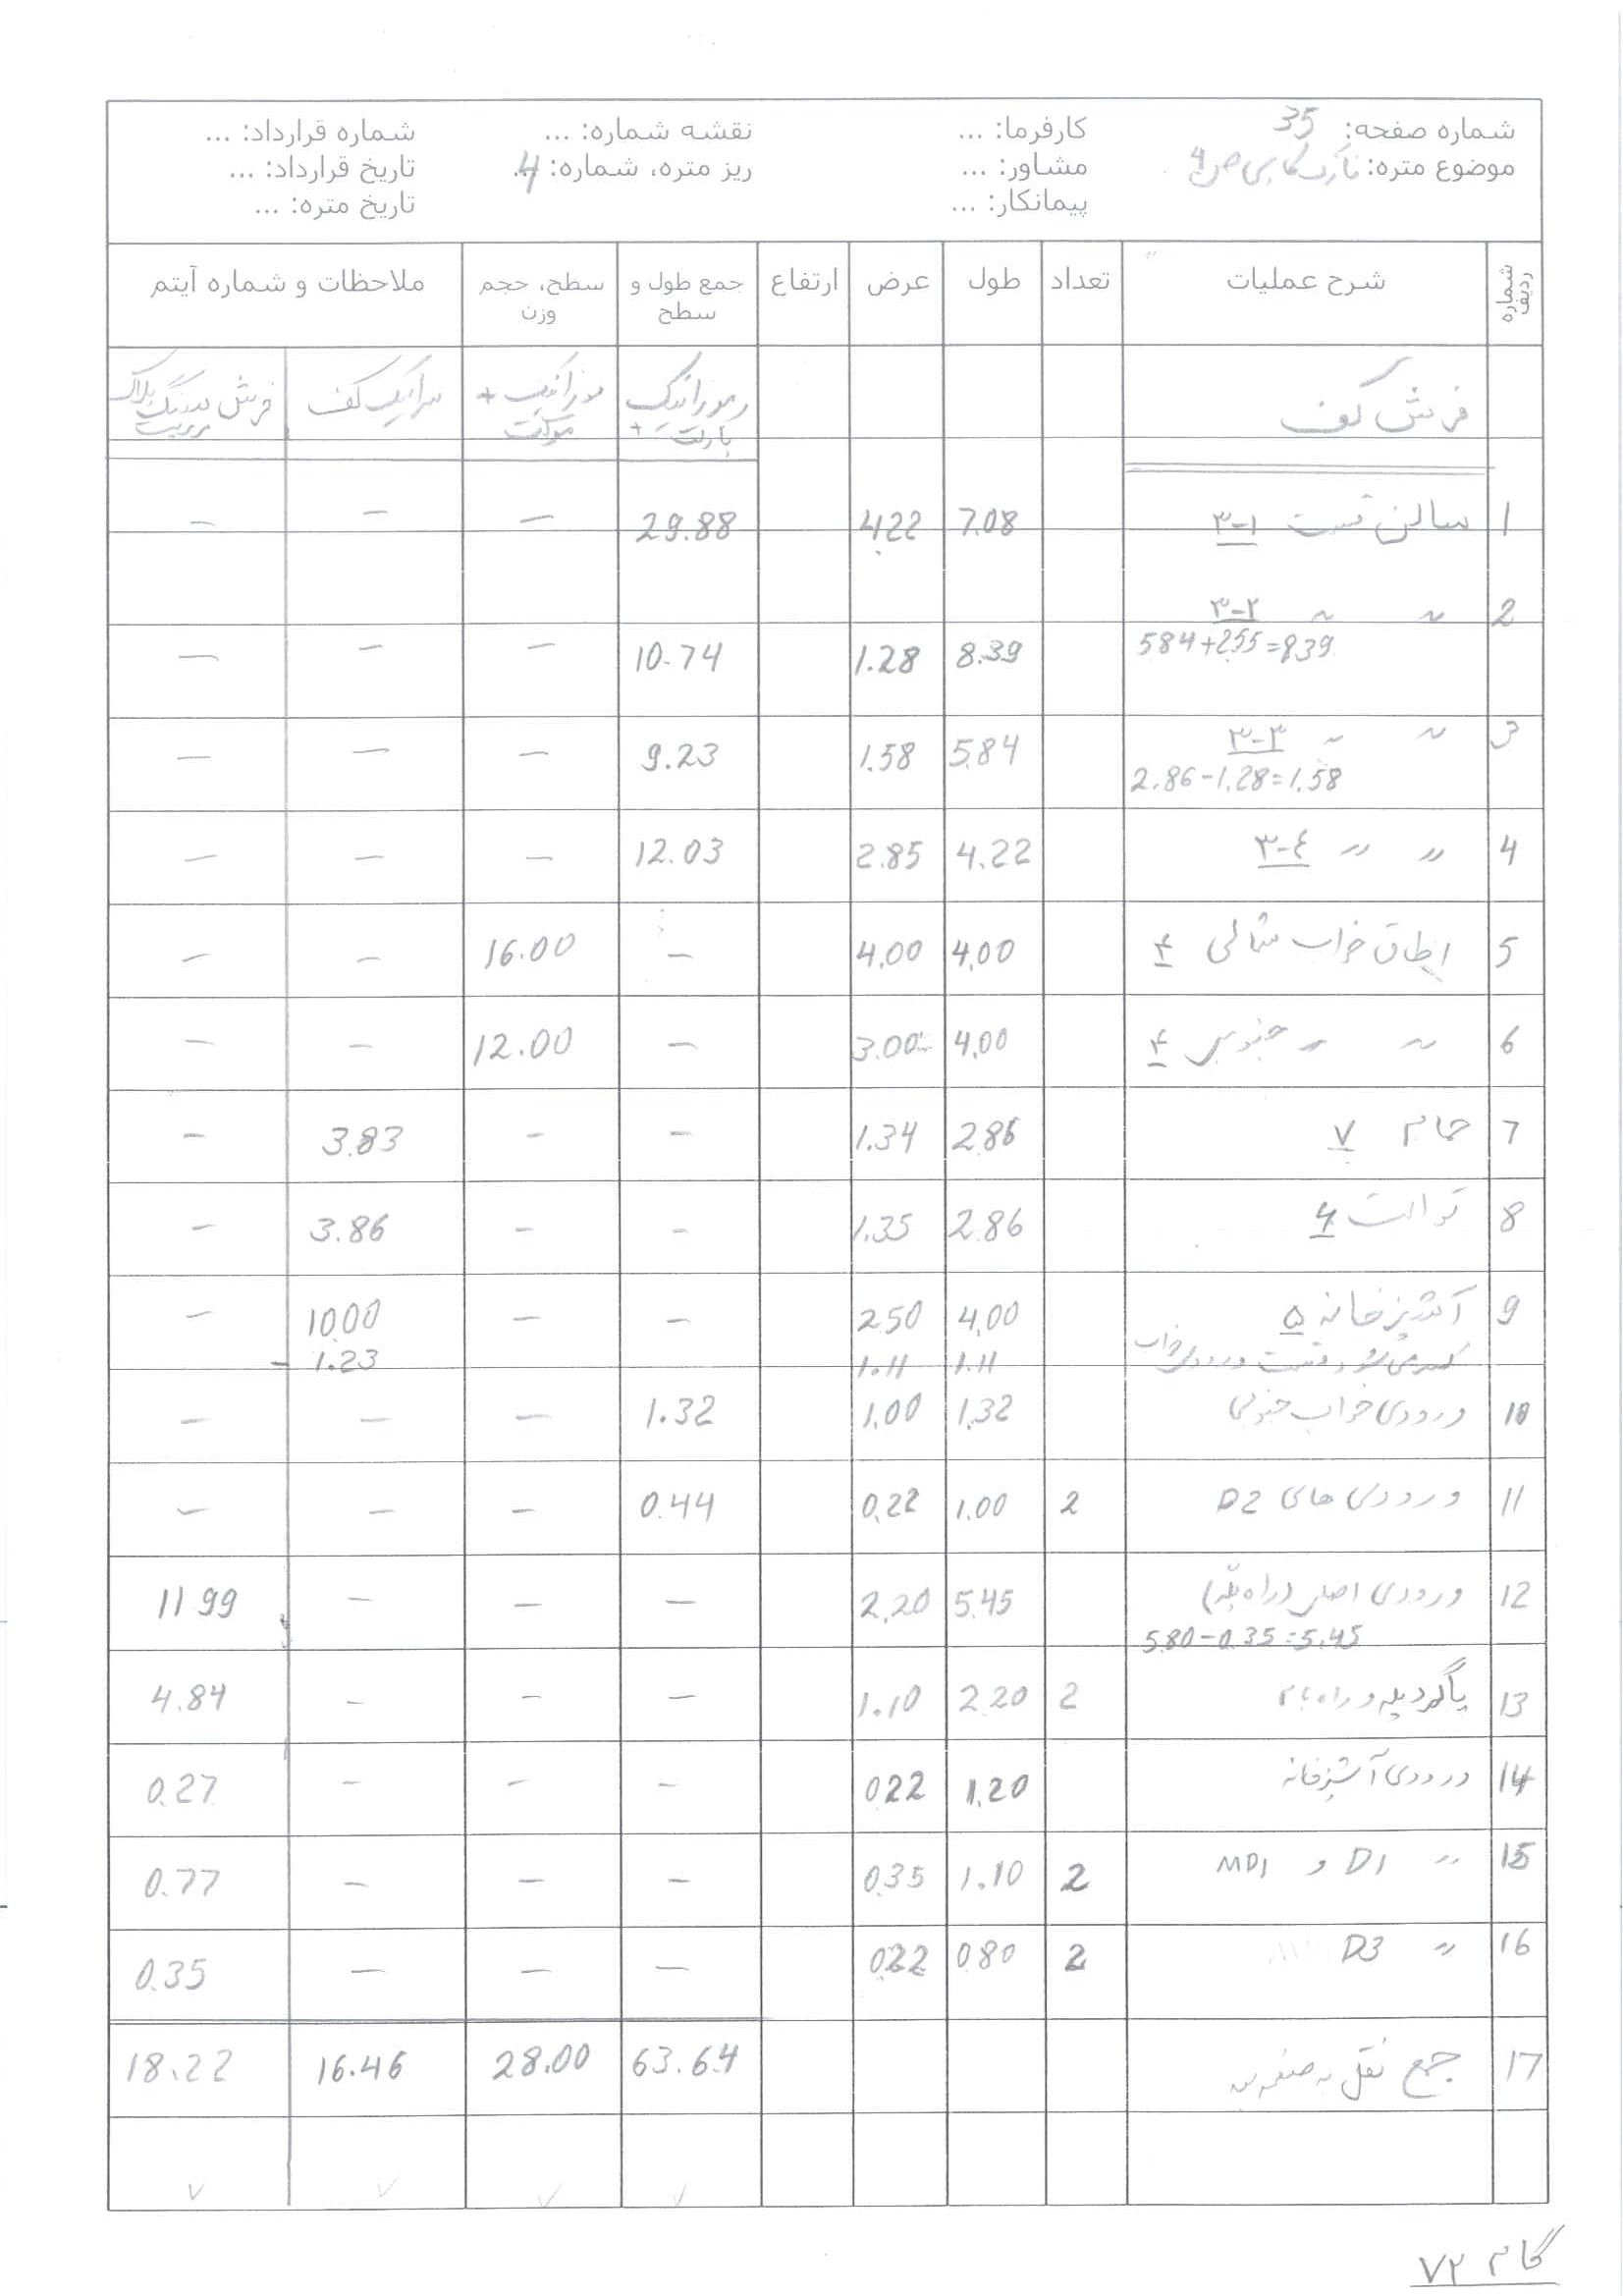 شماره صفحه: 35
موضوع متره: نازک کاری
کارفرما: ...
مشاور: ...
پیمانکار: ...
نقشه شماره: ...
ریز متره، شماره: 4
شماره قرارداد: ...
تاریخ قرارداد: ...
تاریخ متره: ...
شماره ردیف شرح عملیات تعداد طول عرض ارتفاع جمع طول و سطح سطح، حجم وزن ملاحظات و شماره آیتم
فرش کف موزائیک + پارکت موزائیک + موکت سرامیک کف فرش سنگ پلاک
1 سالن نشست ۳-۱ 7.08 4.22 29.88 – – –
2 ~ ~ ۳-۲
584+255=839 8.39 1.28 10.74 – – –
3 ~ ~ ۳-۳ 5.84 1.58 9.23 – – –
2.86-1.28=1.58
4 〃 〃 ۳-٤ 4.22 2.85 12.03 – – –
5 اطاق خواب شمالی ۴ 4.00 4.00 – 16.00 – –
6 ~ ~ جنوبی ۴ 4.00 3.00 – 12.00 – –
7 حمام ۷ 2.86 1.34 – – 3.83 –
8 توالت ۶ 2.86 1.35 – – 3.86 –
9 آشپزخانه ۵ 4.00 2.50 – – 10.00 –
کسر می شود ورودی خواب 1.11 1.11 – 1.23
10 ورودی خواب جنوبی 1.32 1.00 1.32 – – –
11 ورودی های D2 2 1.00 0.22 0.44 – – –
12 ورودی اصلی (راه پله) 5.45 2.20 – – – 11.99
5.80-0.35=5.45
13 پاگرد پله و راه بام 2 2.20 1.10 – – – 4.84
14 ورودی آشپزخانه 1.20 0.22 – – – 0.27
15 〃 D1 و MD1 2 1.10 0.35 – – – 0.77
16 〃 D3 2 0.80 0.22 – – – 0.35
17 جمع نقل به صفحه بعد 63.64 28.00 16.46 18.22
گام ۷۲